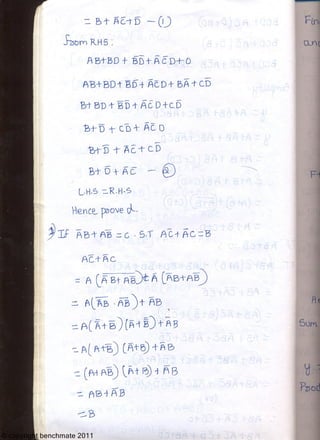 = B + AC̅ + D̅ - ①
From RHS;
AB+BD + B̅D̅ + A̅C̅D + 0
AB+BD + B̅D̅ + A̅C̅D + BA̅ + CD̅
B + BD + B̅D̅ + A̅C̅D + CD̅
B + D̅ + CD̅ + A̅C̅D
B + D̅ + A̅C̅ + CD̅
B + D̅ + A̅C̅ - ②
L.H.S = R.H.S
Hence proved.
If A̅B + AB̅ = C. S.T AC̅ + A̅C = B
AC̅ + A̅C
= A (A̅B + AB̅) + A̅ (A̅B + AB̅)
= A (A̅B · AB̅) + A̅B
= A (A + B̅) (A̅ + B) + A̅B
= A (A + B̅) (A̅ + B) + A̅B
= (A + AB̅) (A̅ + B) + A̅B
= AB + A̅B
= B
Fin
an
F
A
Sum
y
Prod
benchmate 2011